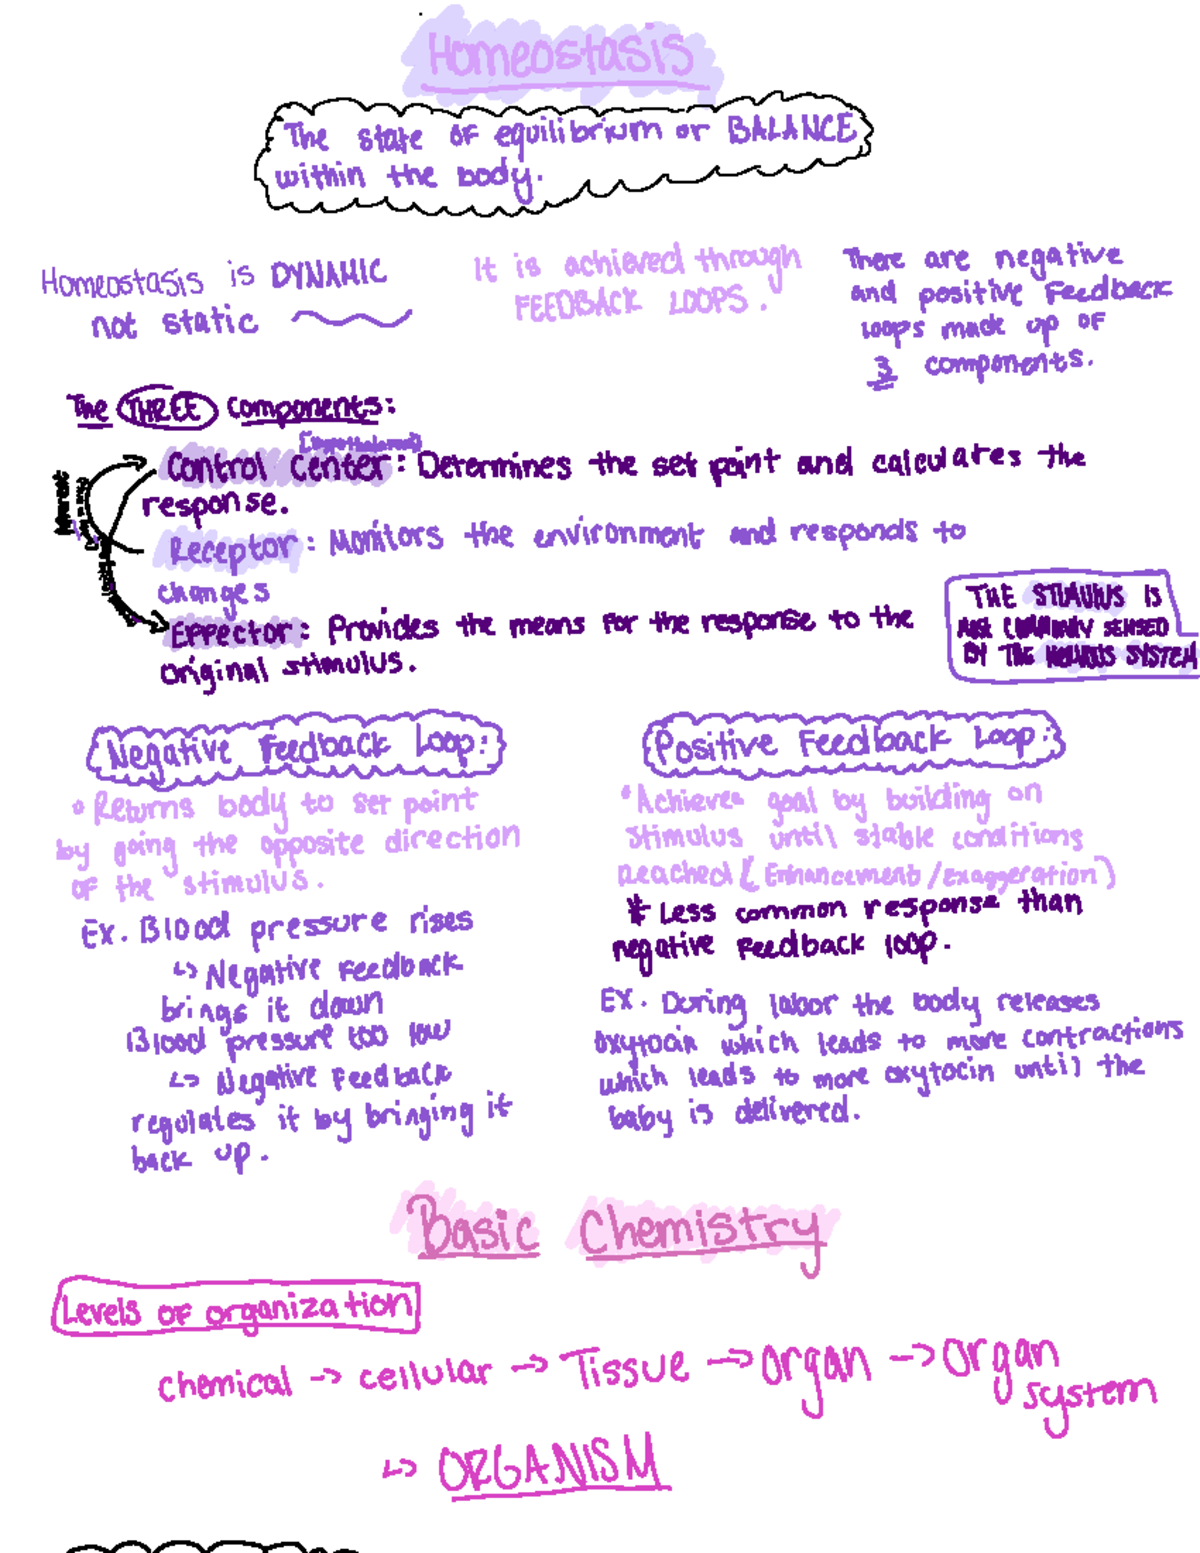 Homeostasis
The state of equilibrium or BALANCE
within the body.
Homeostasis is DYNAMIC
not static
It is achieved through
FEEDBACK LOOPS.
There are negative
and positive Feedback
loops made up of
3 components.
The THREE components:
[Hypothalamus]
Control Center: Determines the set point and calculates the
response.
Afferent
Receptor: Monitors the environment and responds to
changes
Effector: Provides the means for the response to the
original stimulus.
THE STIMULUS IS
COMMONLY SENSED
BY THE NERVOUS SYSTEM
Negative Feedback Loop:
• Returns body to set point
by going the opposite direction
of the stimulus.
Ex. Blood pressure rises
↳ Negative Feedback
brings it down
Blood pressure too low
↳ Negative Feedback
regulates it by bringing it
back up.
Positive Feedback Loop:
• Achieves goal by building on
stimulus until stable conditions
reached (Enhancement/Exaggeration)
* Less common response than
negative Feedback loop.
EX. During labor the body releases
oxytocin which leads to more contractions
which leads to more oxytocin until the
baby is delivered.
Basic Chemistry
Levels of organization
chemical → cellular → Tissue → organ → organ
system
↳ ORGANISM